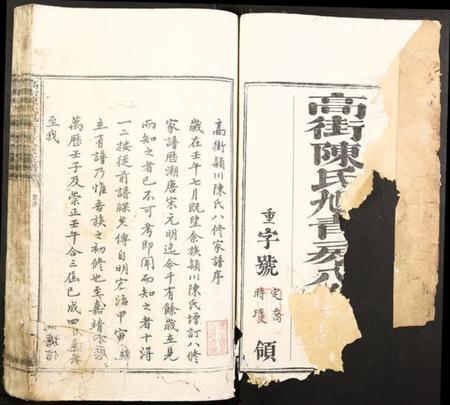 高街陳氏旭書房八
重字號
定喬
時璞
領
高街潁川陳氏八修家譜序
歲在壬午七月既望余族潁川陳氏增訂八修
家譜曆溯唐宋元明迄今千有餘歲主見
而知之者已不可考即聞而知之者十得
一二按從前譜牒矣傳自明宏治甲寅
主有譜乃惟吾族之初修也至嘉靖
萬曆壬子及崇正壬午合三佢已成四
至我